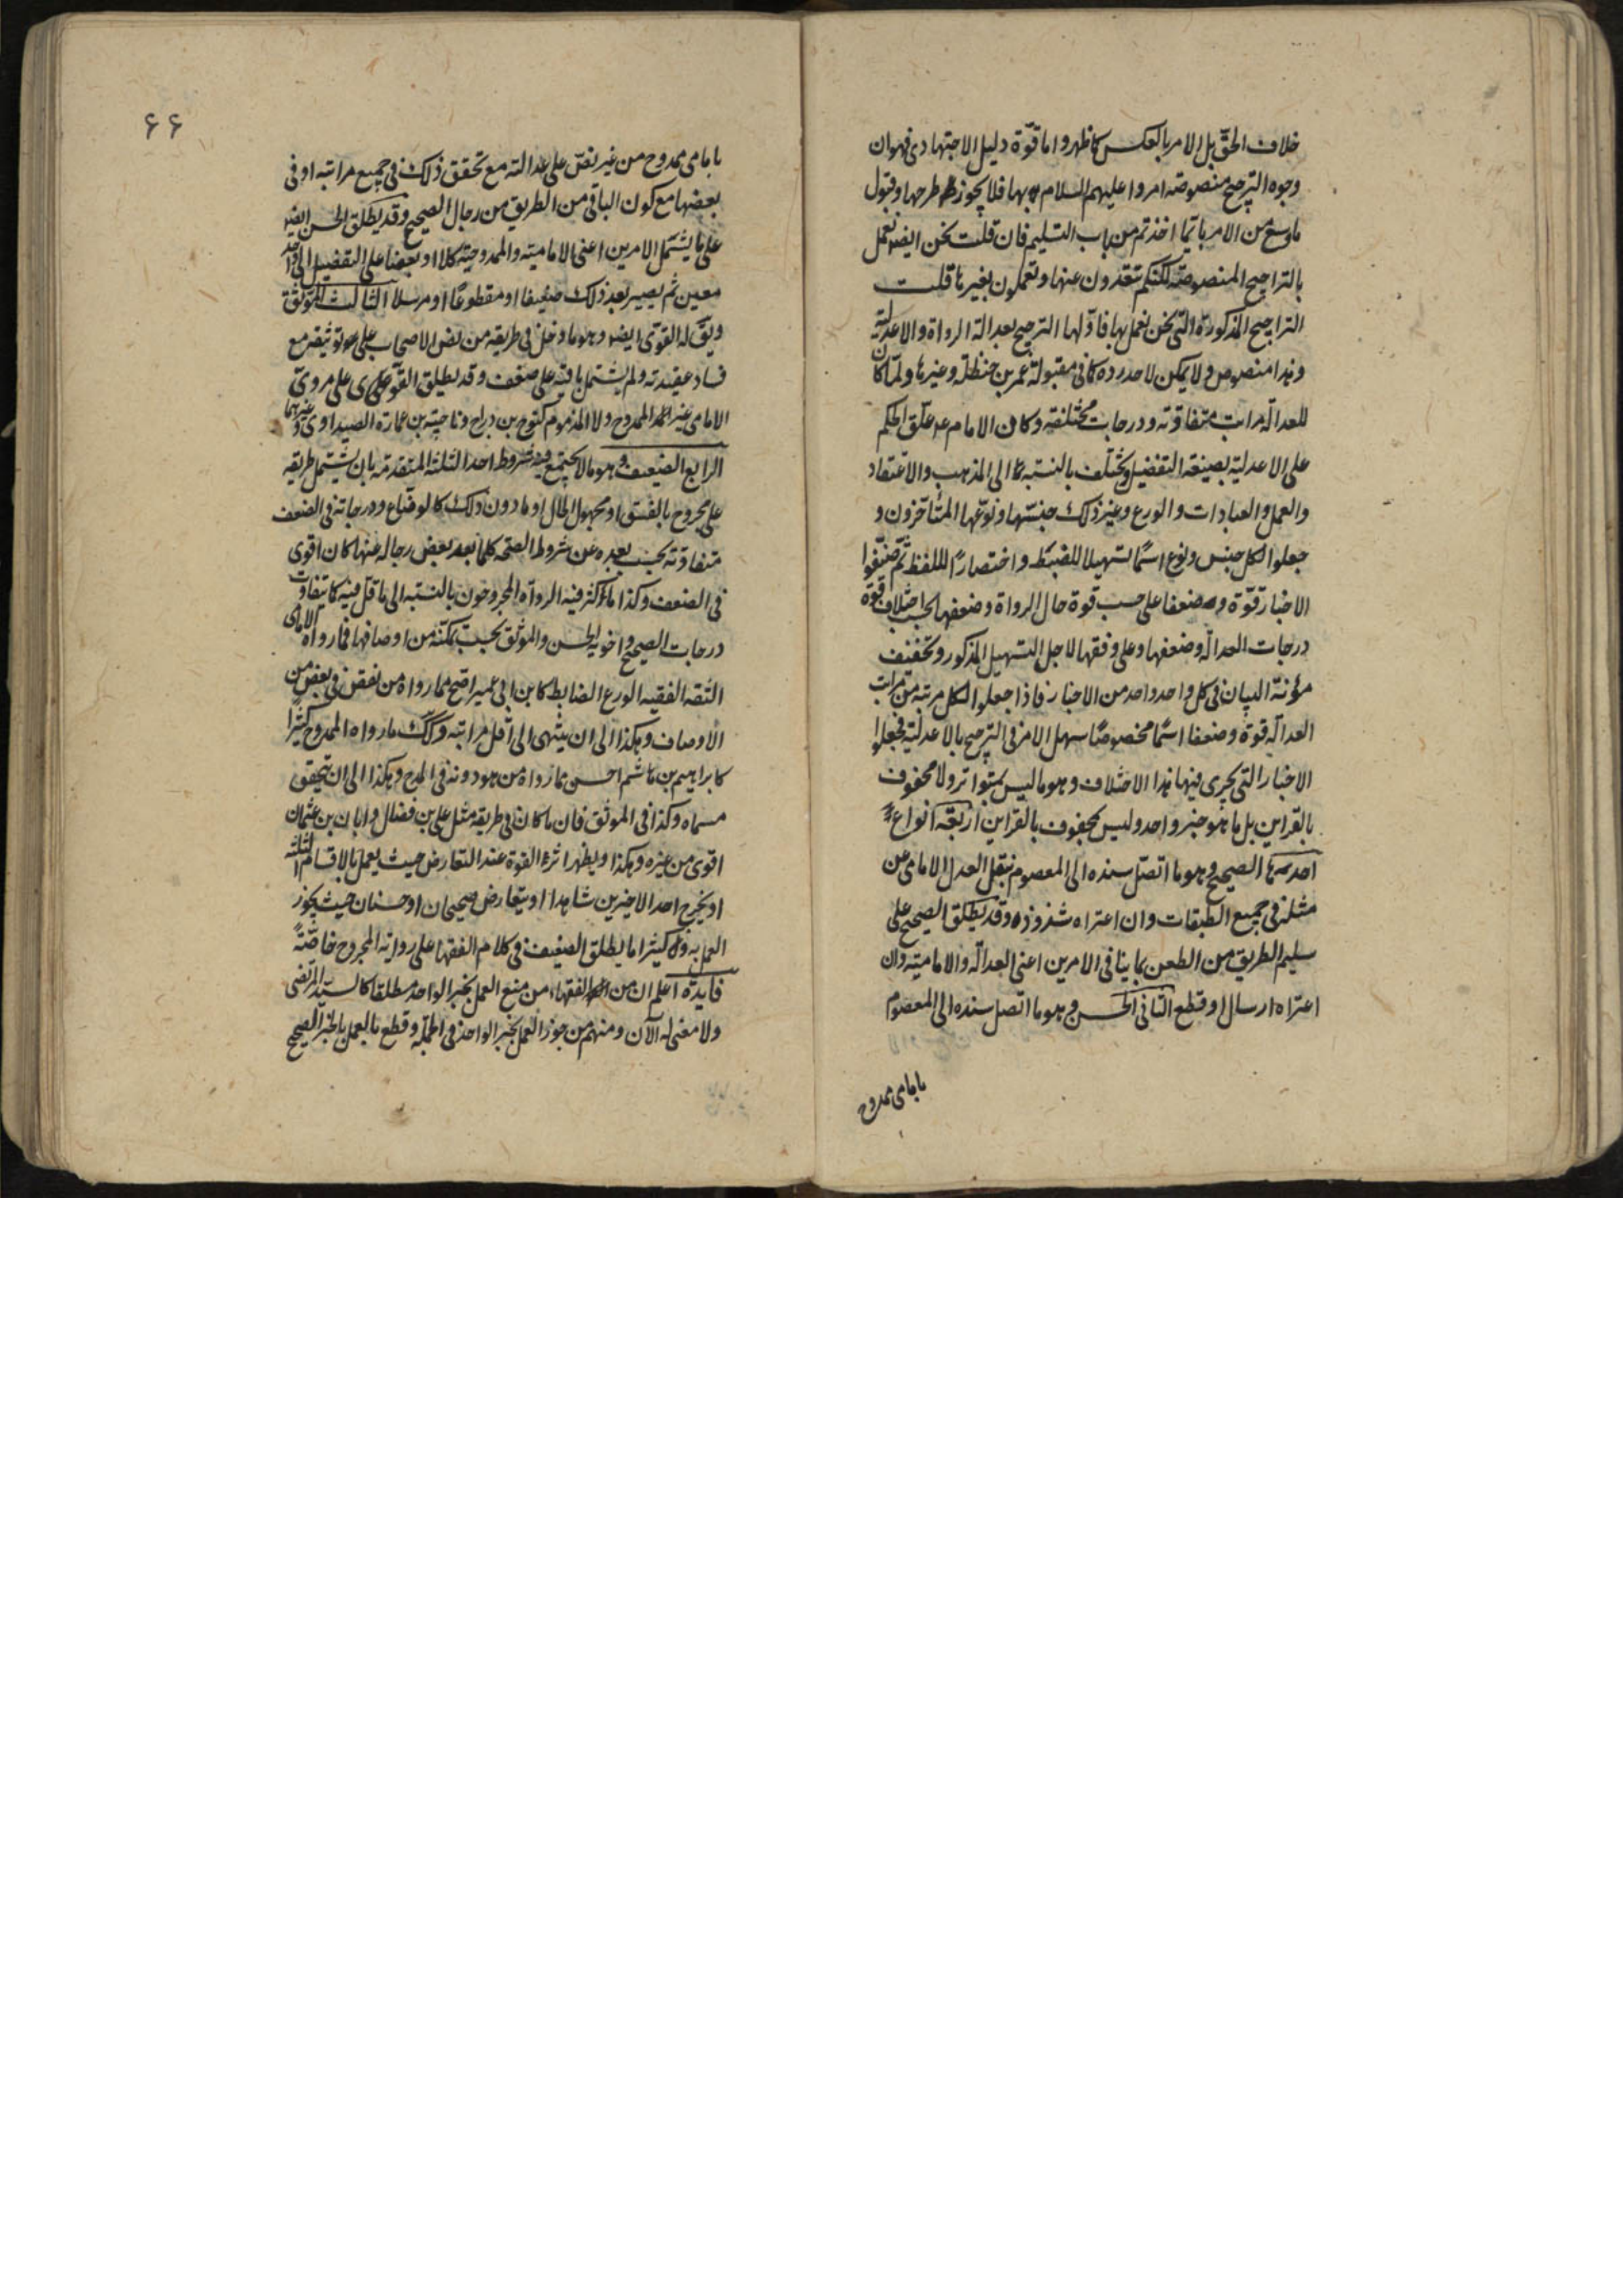 خلاف الحق بل الامر بالعكس كما ظهر واما قوة دليل الاجتهادى فهو ان
وجوه الترجيح منصوصه امروا عليهم السلام بها فلا يجوز طرحها وقبول
ما وسع من الامر بايما اخذتم من باب التسليم فان قلت نحن ايضا نعمل
بالتراجيح المنصوصة لكنكم تتعدون عنها وتعملون بغيرها قلت
التراجيح المذكورة التى نحن نعمل بها فاولها الترجيح بعدالة الرواة والاعدلية
وهذا منصوص ولا يمكن لاحد رده كما فى مقبولة عمر بن حنظلة وغيرها ولما كان
للعدالة مراتب متفاوته ودرجات مختلفه وكان الامام ع علق الحكم
على الاعدلية بصيغة التفضيل ويختلف بالنسبة الى المذهب والاعتقاد
والعمل والعبادات والورع وغير ذلك جنسها ونوعها المتأخرون و
جعلوا لكل جنس ونوع اسما تسهيلا للضبط واختصارا للفظ ثم صنفوا
الاخبار قوة وضعفا على حسب قوة حال الرواة وضعفها بحسب اختلاف قوة
درجات العدالة وضعفها وعلى وفقها لاجل التسهيل المذكور وتخفيف
مؤنة البيان فى كل واحد واحد من الاخبار فاذا جعلوا لكل مرتبة من مراتب
العدالة قوة وضعفا اسما مخصوصا سهل الامر فى الترجيح بالاعدلية فجعلوا
الاخبار التى يجرى فيها هذا الاختلاف وهو ما ليس بمتواتر ولا محفوف
بالقراين بل ما هو خبر واحد وليس محفوف بالقراين اربعة انواع
احدها الصحيح وهو ما اتصل سنده الى المعصوم بنقل العدل الامامى عن
مثله فى جميع الطبقات وان اعتراه شذوذ وقد يطلق الصحيح على
سليم الطريق من الطعن بما ينافى الامرين اعنى العدالة والامامية وان
اعتراه ارسال او قطع الثانى الحسن وهو ما اتصل سنده الى المعصوم
بامامى ممدوح
۶۶
بامامى ممدوح من غير نص على عدالته مع تحقق ذلك فى جميع مراتبه او فى
بعضها مع كون الباقى من الطريق من رجال الصحيح وقد يطلق الحسن ايضا
على ما يشتمل الامرين اعنى الامامية والممدوحية كلا او بعضا على التفصيل الى واحد
معين ثم يصير بعد ذلك ضعيفا او مقطوعا او مرسلا الثالث الموثق
ويق له القوى ايضا وهو ما دخل فى طريقه من نص الاصحاب على توثيقه مع
فساد عقيدته ولم يشتمل باقيه على ضعف وقد يطلق القوى على مروى
الامامى غير الممدوح ولا المذموم كنوح بن دراج وناجية بن عمارة الصيداوى وغيرهما
الرابع الضعيف وهو ما لا يجتمع فيه شروط احد الثلثة المتقدمة بان يشتمل طريقه
على مجروح بالفسق او مجهول الحال او ما دون ذلك كالوضاع ودرجاته فى الضعف
متفاوتة بحسب بعده عن شروط الصحة كلما بعد بعض رجاله عنها كان اقوى
فى الضعف وكذا ما كثر فيه الرواة المجروحون بالنسبة الى ما قل فيه كما يتفاوت
درجات الصحيح واخويه الحسن والموثق بحسب تمكنه من اوصافها فما رواه الامامى
الثقه الفقيه الورع الضابط كابن ابى عمير اصح مما رواه من نقص فى بعض من
الاوصاف وهكذا الى ان ينتهى الى اقل مراتبه وكذلك ما رواه الممدوح كثيرا
كابراهيم بن هاشم احسن مما رواه من هو دونه فى المدح وهكذا الى ان يتحقق
مسماه وكذا فى الموثق فان ما كان فى طريقه مثل على بن فضال وابان بن عثمان
اقوى من غيره وهكذا ويظهر اثر القوة عند التعارض حيث يعمل بالاقسام الثلثه
او يخرج احد الاخيرين شاهدا او يتعارض صحيحان او حسنان حيث يجوز
العمل به وكثيرا ما يطلق الضعيف فى كلام الفقها على رواية المجروح خاصة
فايدة اعلم ان من الفقهاء من منع العمل بخبر الواحد مطلقا كالسيد المرتضى
ولا معنى له الآن ومنهم من جوز العمل بخبر الواحد فى الجملة وقطع بالعمل بالخبر الصحيح